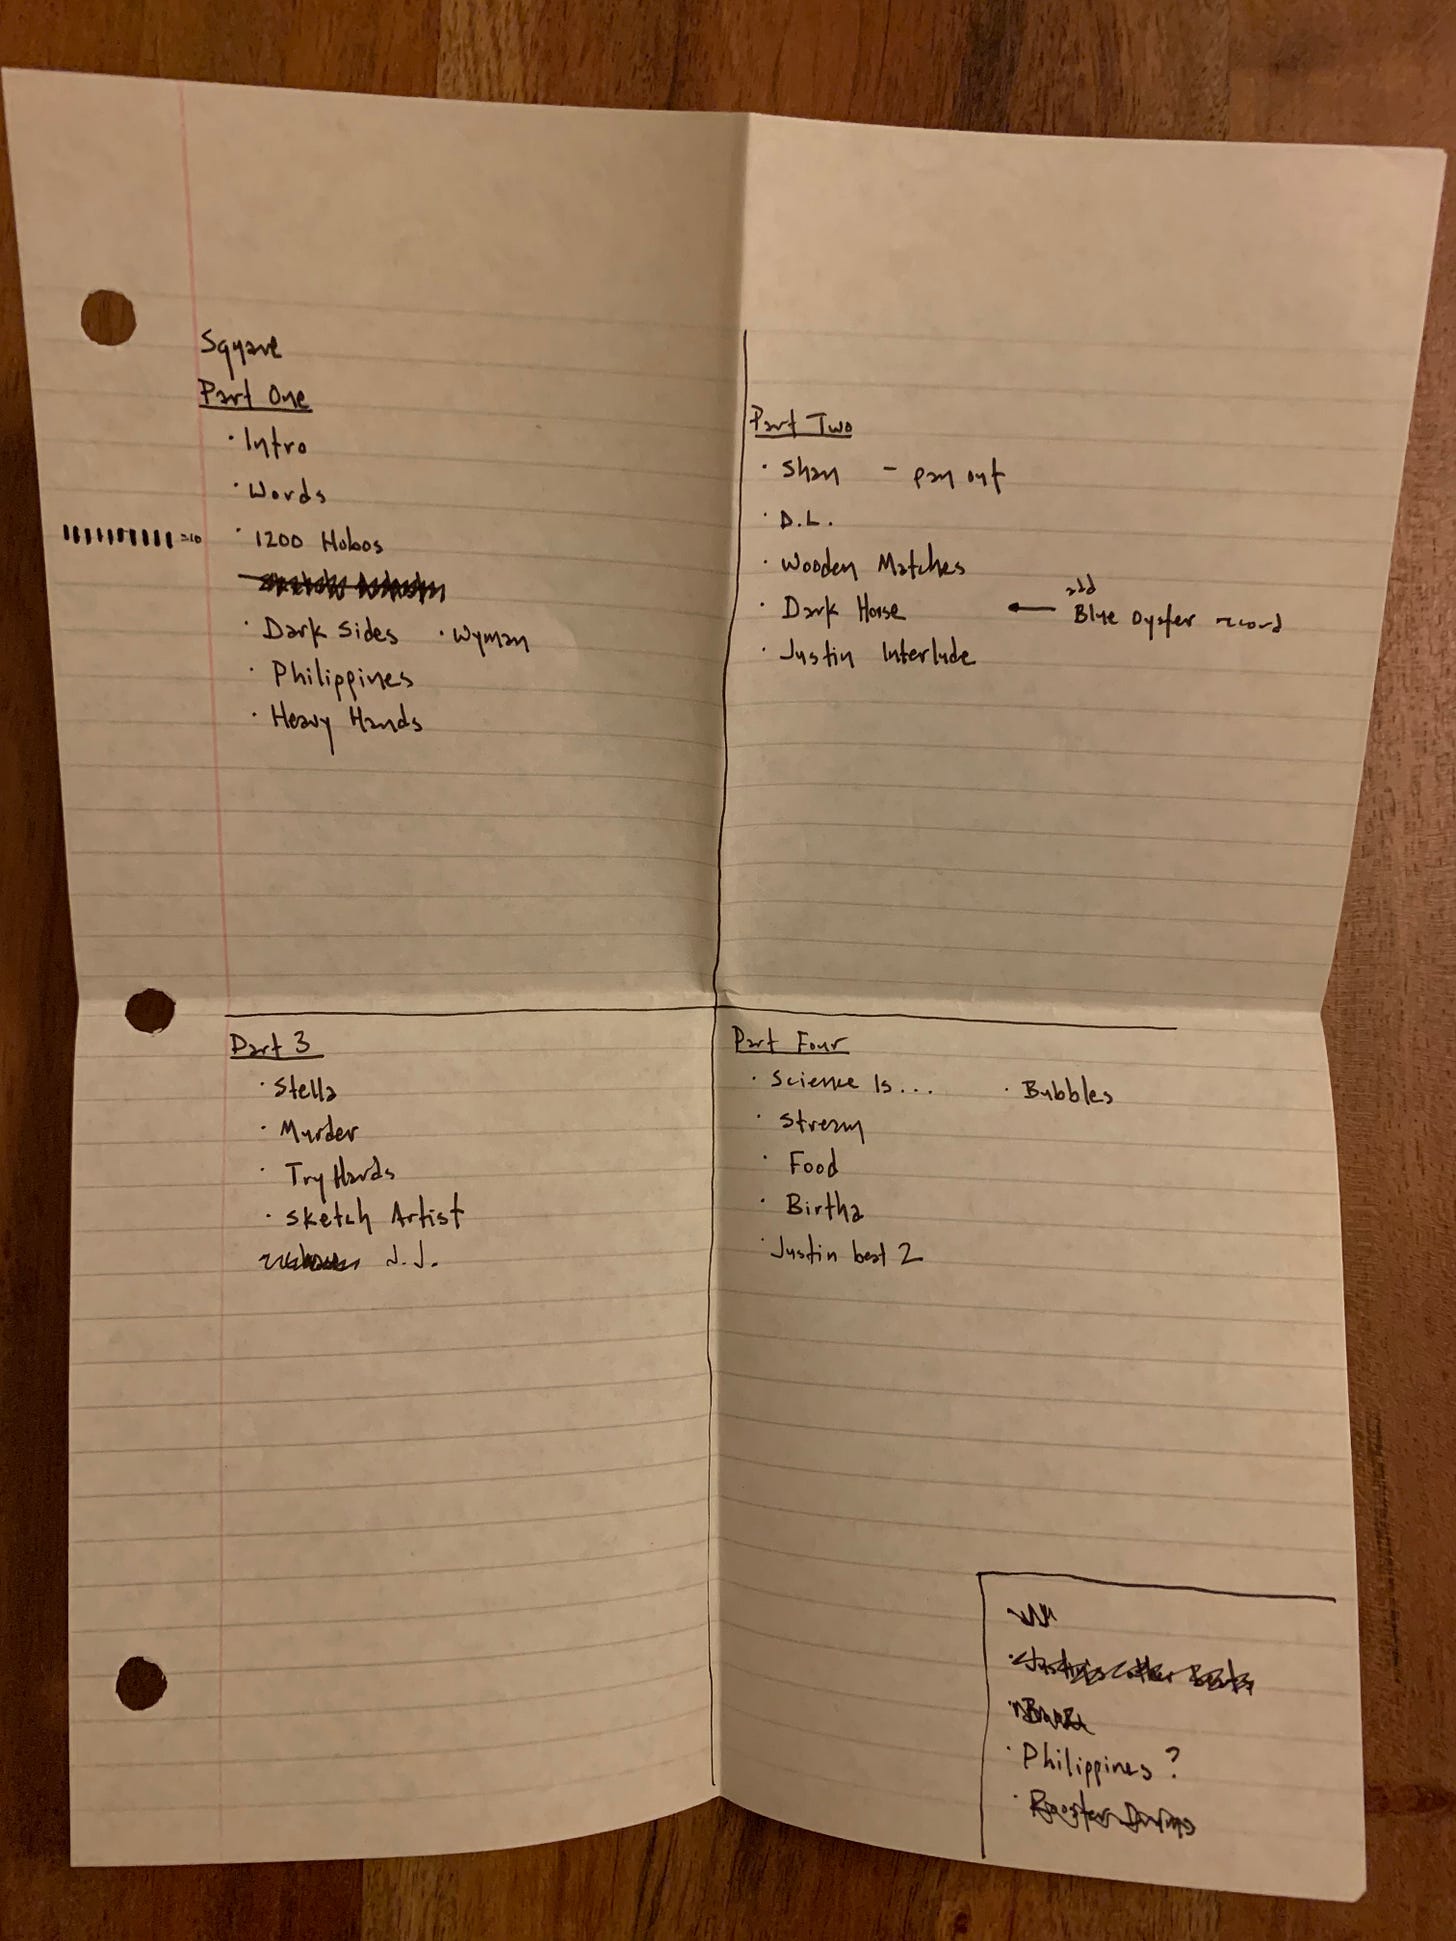 Square
Part One
· Intro
· Words
=10 · 1200 Hobos
· Dark Sides · Wyman
· Philippines
· Heavy Hands
Part Two
· Shan – pan out
· D.L.
· Wooden Matches
add
· Dark Horse ← Blue Oyster record
· Justin Interlude
Part 3
· Stella
· Murder
· Try Hards
· Sketch Artist
J.J.
Part Four
· Science Is... · Bubbles
· Stream
· Food
· Birtha
· Justin beat 2
· Philippines?